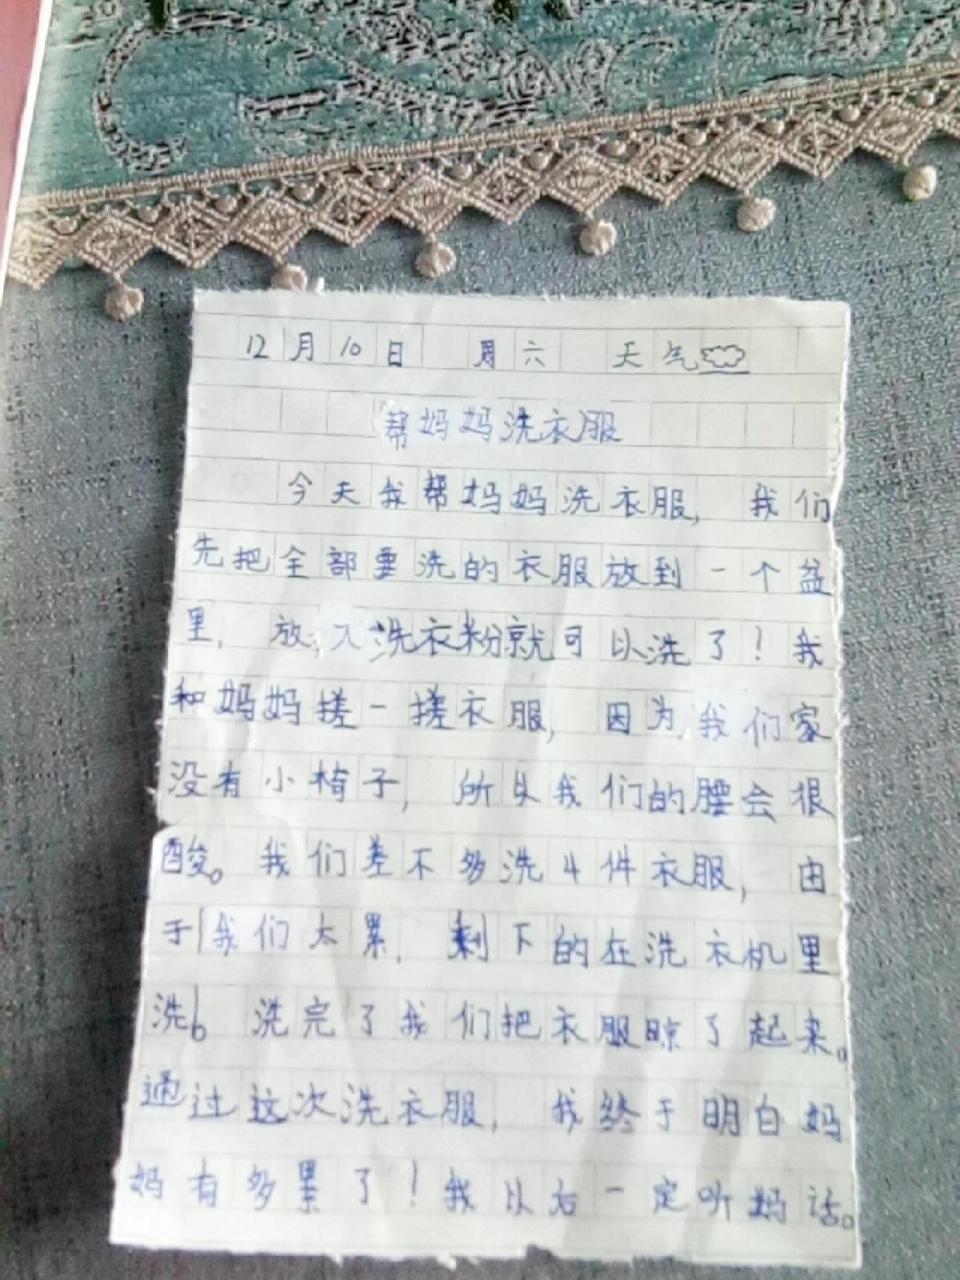 12月10日 周六 天气
帮妈妈洗衣服
今天我帮妈妈洗衣服, 我们
先把全部要洗的衣服放到一个盆
里, 放入洗衣粉就可以洗了！我
和妈妈搓一搓衣服, 因为我们家
没有小椅子, 所以我们的腰会很
酸。我们差不多洗4件衣服, 由
于我们太累, 剩下的在洗衣机里
洗。洗完了我们把衣服晾了起来。
通过这次洗衣服, 我终于明白妈
妈有多累了！我以后一定听妈话。